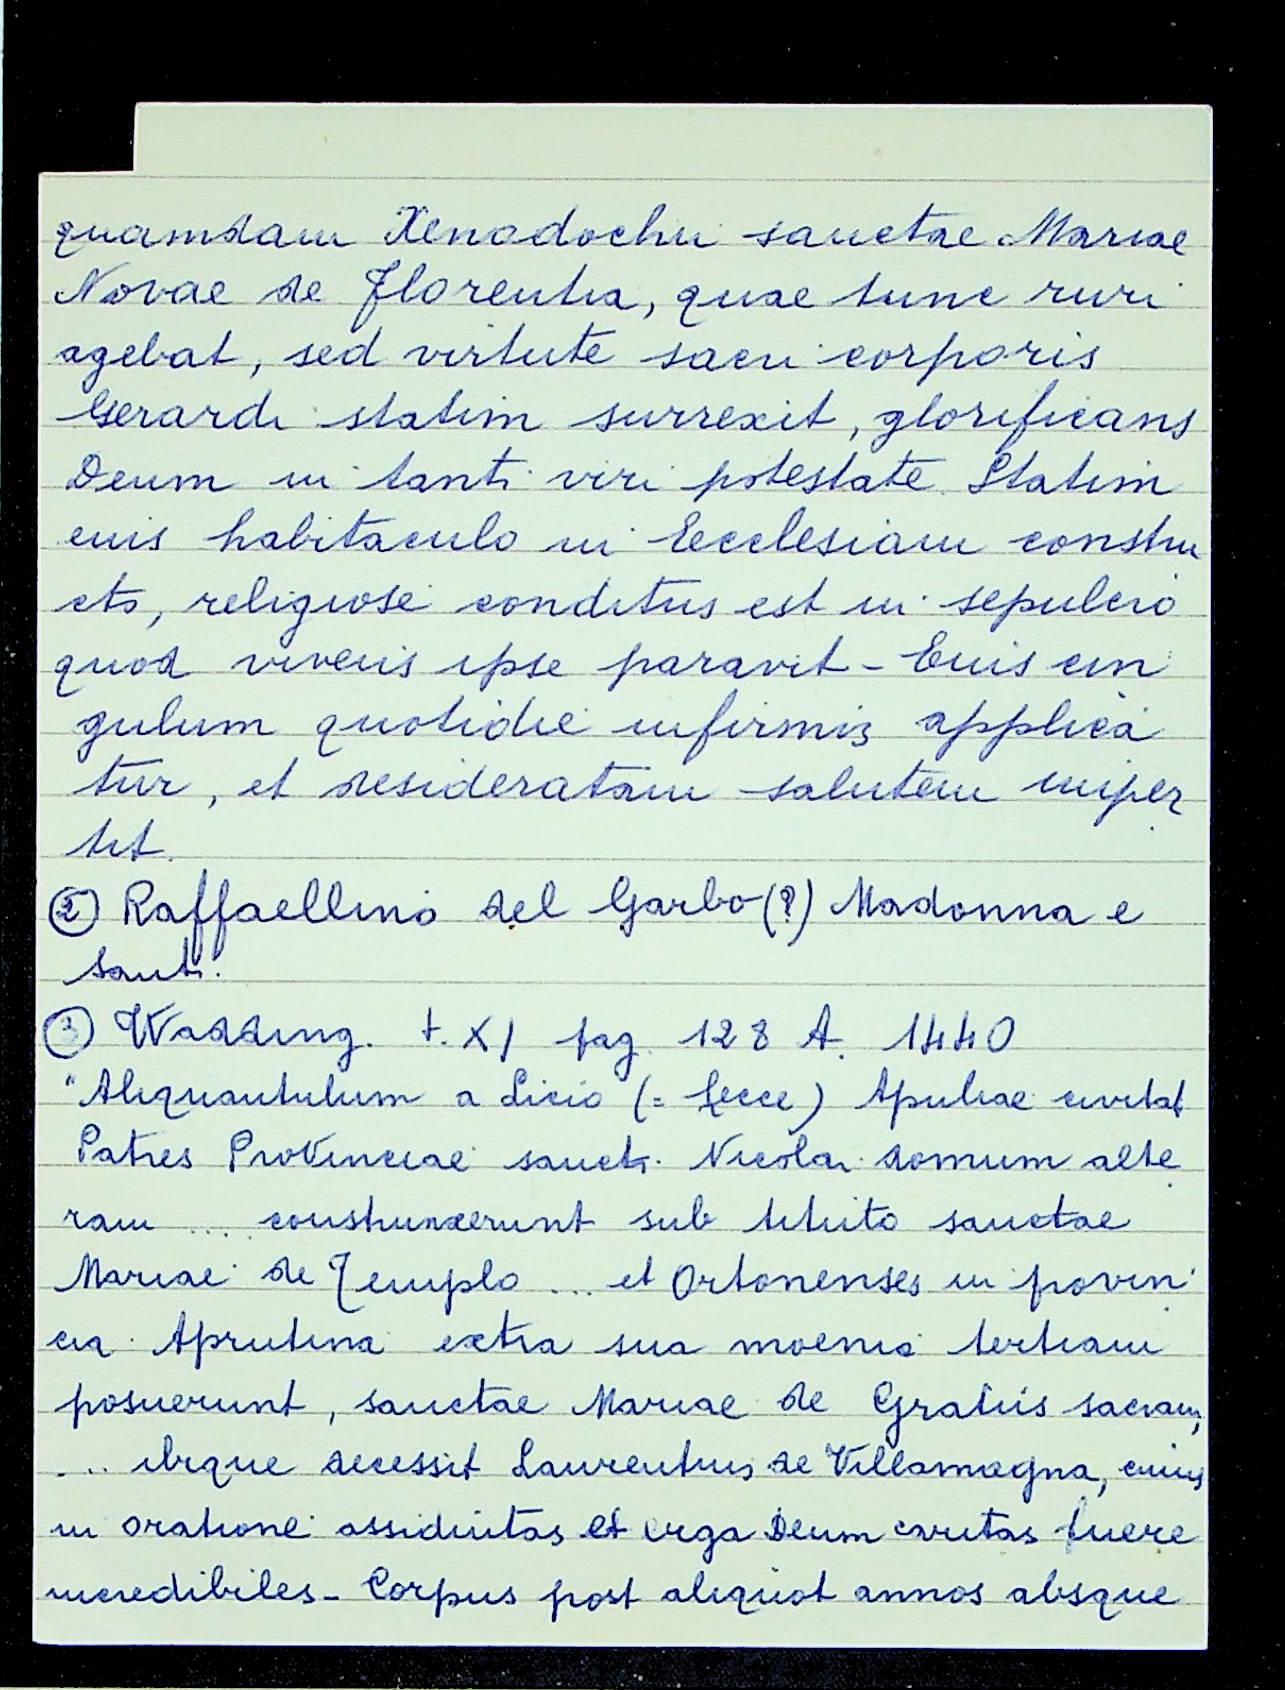 quamdam Xenodochii sanctae Mariae
Novae de Florentia, quae tunc ruri
agebat, sed virtute sacri corporis
Gerardi statim surrexit, glorificans
Deum in tanti viri potestate. Statim
eius habitaculo in Ecclesiam constru
cto, religiose conditus est in sepulcro
quod vivens ipse paravit - Euis cin
gulum quotidie infirmis applica
tur, et desideratam salutem imper
tit.
② Raffaellino del Garbo (?) Madonna e
Santi.
③ Wadding. t. XI pag. 128 A. 1440
"Aliquantulum a Licio (= Lecce) Apuliae civitat
Patres Provinciae sancti Nicolai domum alte
ram .... construxerunt sub titulo sanctae
Mariae de Templo ... et Ortonenses in provin
cia Aprutina extra sua moenia tertiam
posuerunt, sanctae Mariae de Gratiis sacram,
... ibique decessit Laurentius de Villamagna, cuius
in oratione assiduitas et erga Deum caritas fuere
incredibiles - Corpus post aliquot annos absque